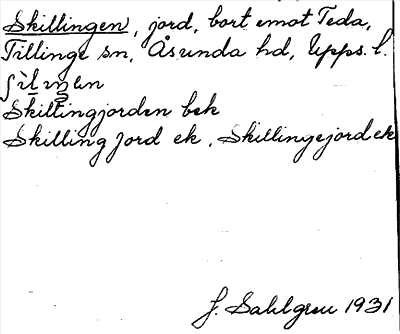 Skillingen, jord, bort emot Teda,
Tillinge sn, Åsunda hd, Upps. l.
Skillingjorden bek
Skilling jord ek, Skillingejord ek
J. Sahlgren 1931